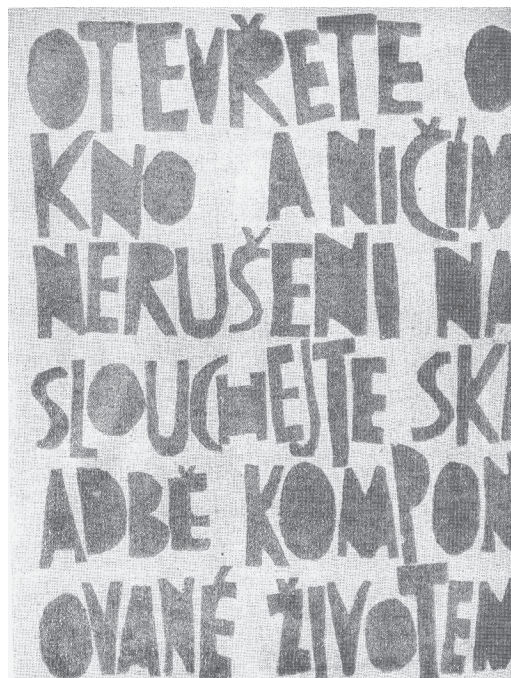 OTEVŘETE O
KNO A NIČÍM
NERUŠENI NA
SLOUCHEJTE SKL
ADBĚ KOMPON
OVANÉ ŽIVOTEM